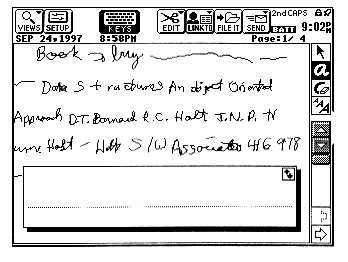 VIEWS SETUP KEYS EDIT LINKTO FILE IT SEND 2nd CAPS BATT 9:02PM
SEP 24,1997 8:58PM Page:1/ 4
Book → buy
Data S t ructures An object Oriented
Approach D.T. Barnard R.C. Holt J.N.P.
Holt - Holt S/W Associates 416 978